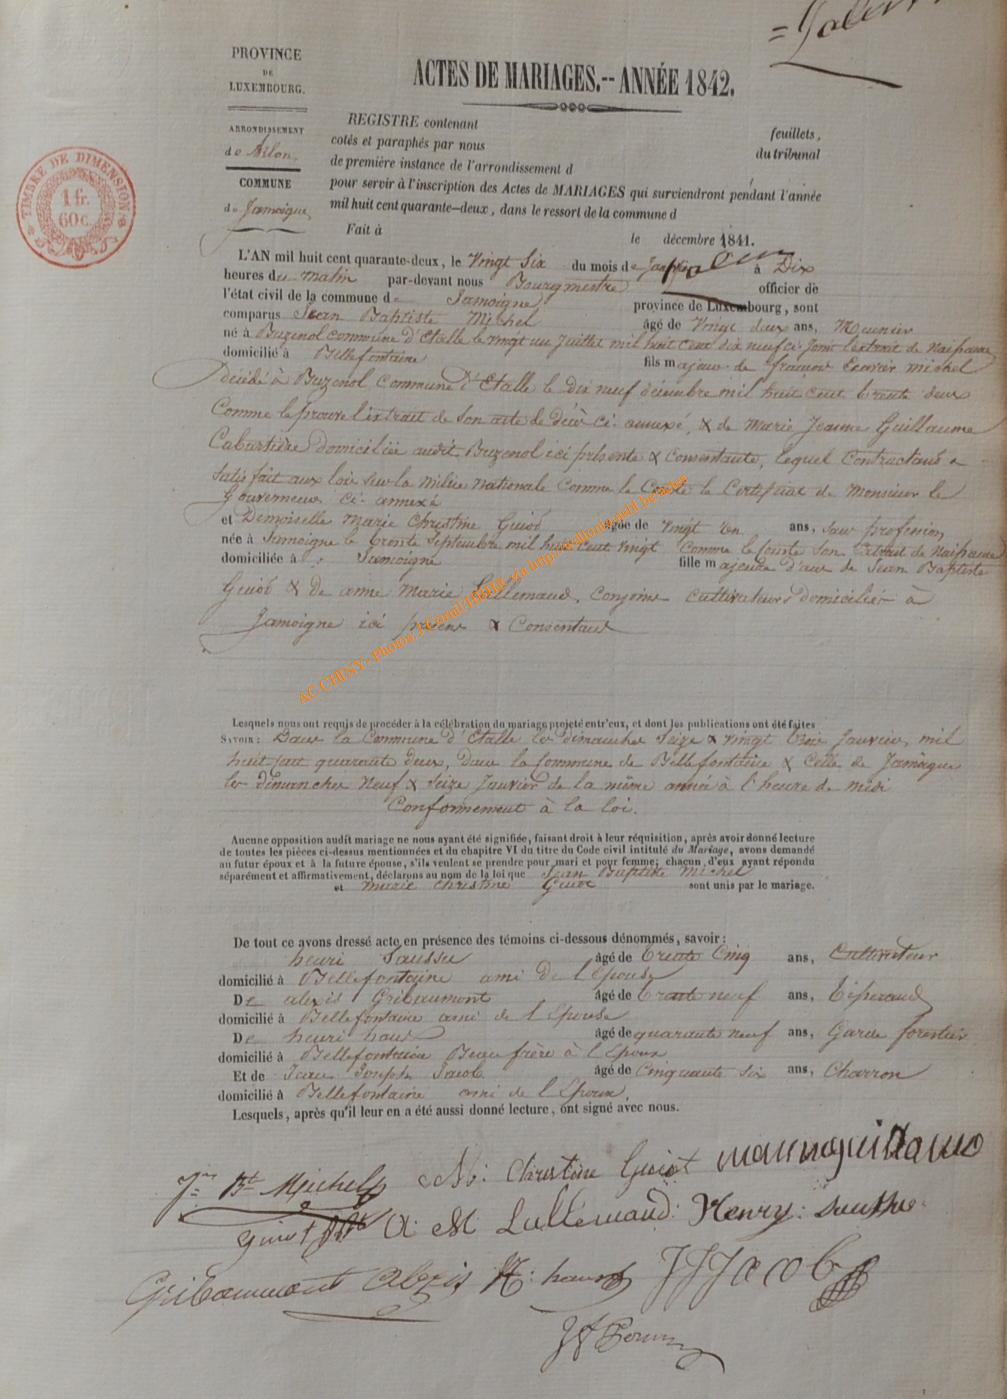 PROVINCE
DE
LUXEMBOURG.
ARRONDISSEMENT
de Arlon.
COMMUNE
de Jamoigne
TIMBRE DE DIMENSION
1 fr.
60 c.
ACTES DE MARIAGES.-- ANNÉE 1842.
REGISTRE contenant feuillets,
cotés et paraphés par nous du tribunal
de première instance de l'arrondissement d
pour servir à l'inscription des Actes de MARIAGES qui surviendront pendant l'année
mil huit cent quarante-deux, dans le ressort de la commune d
Fait à le décembre 1841.
L'AN mil huit cent quarante-deux, le Vingt Six du mois de à Dix
heures du matin par-devant nous Bourgmestre officier de
l'état civil de la commune de Jamoigne province de Luxembourg, sont
comparus Jean Baptiste Michel âgé de Vingt deux ans, Meunier
né à Buzenol commune d'Etalle le vingt un Juillet mil huit cent dix neuf ci-joint l'extrait de Naissance
domicilié à Bellefontaine fils majeur de françois michel
décédé à Buzenol Commune d'Etalle le dix neuf décembre mil huit cent trente deux
Comme le prouve l'extrait de Son acte de décès ci-annexé, & de Marie Jeanne Guillaume
Cabartière domiciliée audit Buzenol ici présente & Consentante, lequel Contractant a
Satisfait aux lois sur la milice nationale comme le Conste le Certificat de Monsieur le
Gouverneur ci-annexé
et Demoiselle Marie Christine Guiot âgée de Vingt un ans, Sans profession
née à Jamoigne le trente Septembre mil huit cent vingt comme le Conste Son Extrait de Naissance
domiciliée à Jamoigne fille majeure d'ans de Jean Baptiste
Guiot & de anne Marie Lallemand, Conjoins Cultivateurs domiciliés à
Jamoigne ici présens & Consentans
AC CHINY - photos
Lesquels nous ont requis de procéder à la célébration du mariage projeté entr'eux, et dont les publications ont été faites
SAVOIR: Dans la Commune d'Etalle les dimanches Seize & vingt trois Janvier, mil
huit cent quarante deux, Dans la Commune de Bellefontaine & Celle de Jamoigne
les dimanches Neuf & Seize Janvier de la même année à l'heure de midi
Conformement à la loi.
Aucune opposition audit mariage ne nous ayant été signifiée, faisant droit à leur réquisition, après avoir donné lecture
de toutes les pièces ci-dessus mentionnées et du chapitre VI du titre du Code civil intitulé du Mariage, avons demandé
au futur époux et à la future épouse, s'ils veulent se prendre pour mari et pour femme; chacun d'eux ayant répondu
séparément et affirmativement, déclarons au nom de la loi que Jean Baptiste Michel
et Marie Christine Guiot sont unis par le mariage.
De tout ce avons dressé acte en présence des témoins ci-dessous dénommés, savoir:
henri âgé de trente Cinq ans, Cultivateur
domicilié à Bellefontaine ami de l'Epouse
De alexis Gribaumont âgé de trente neuf ans,
domicilié à Bellefontaine ami de l'Epouse
De henri âgé de quarante neuf ans, Garde forestier
domicilié à Bellefontaine Beau frère à l'Epoux
Et de Jean Joseph Jacob âgé de Cinquante six ans, Charron
domicilié à Bellefontaine ami de l'Epoux,
Lesquels, après qu'il leur en a été aussi donné lecture, ont signé avec nous.
Jn Bt Michel M: Christine Guiot
guiot A: M: Lallemand: Henry:
Gribaumont Alexis H: JJ Jacob